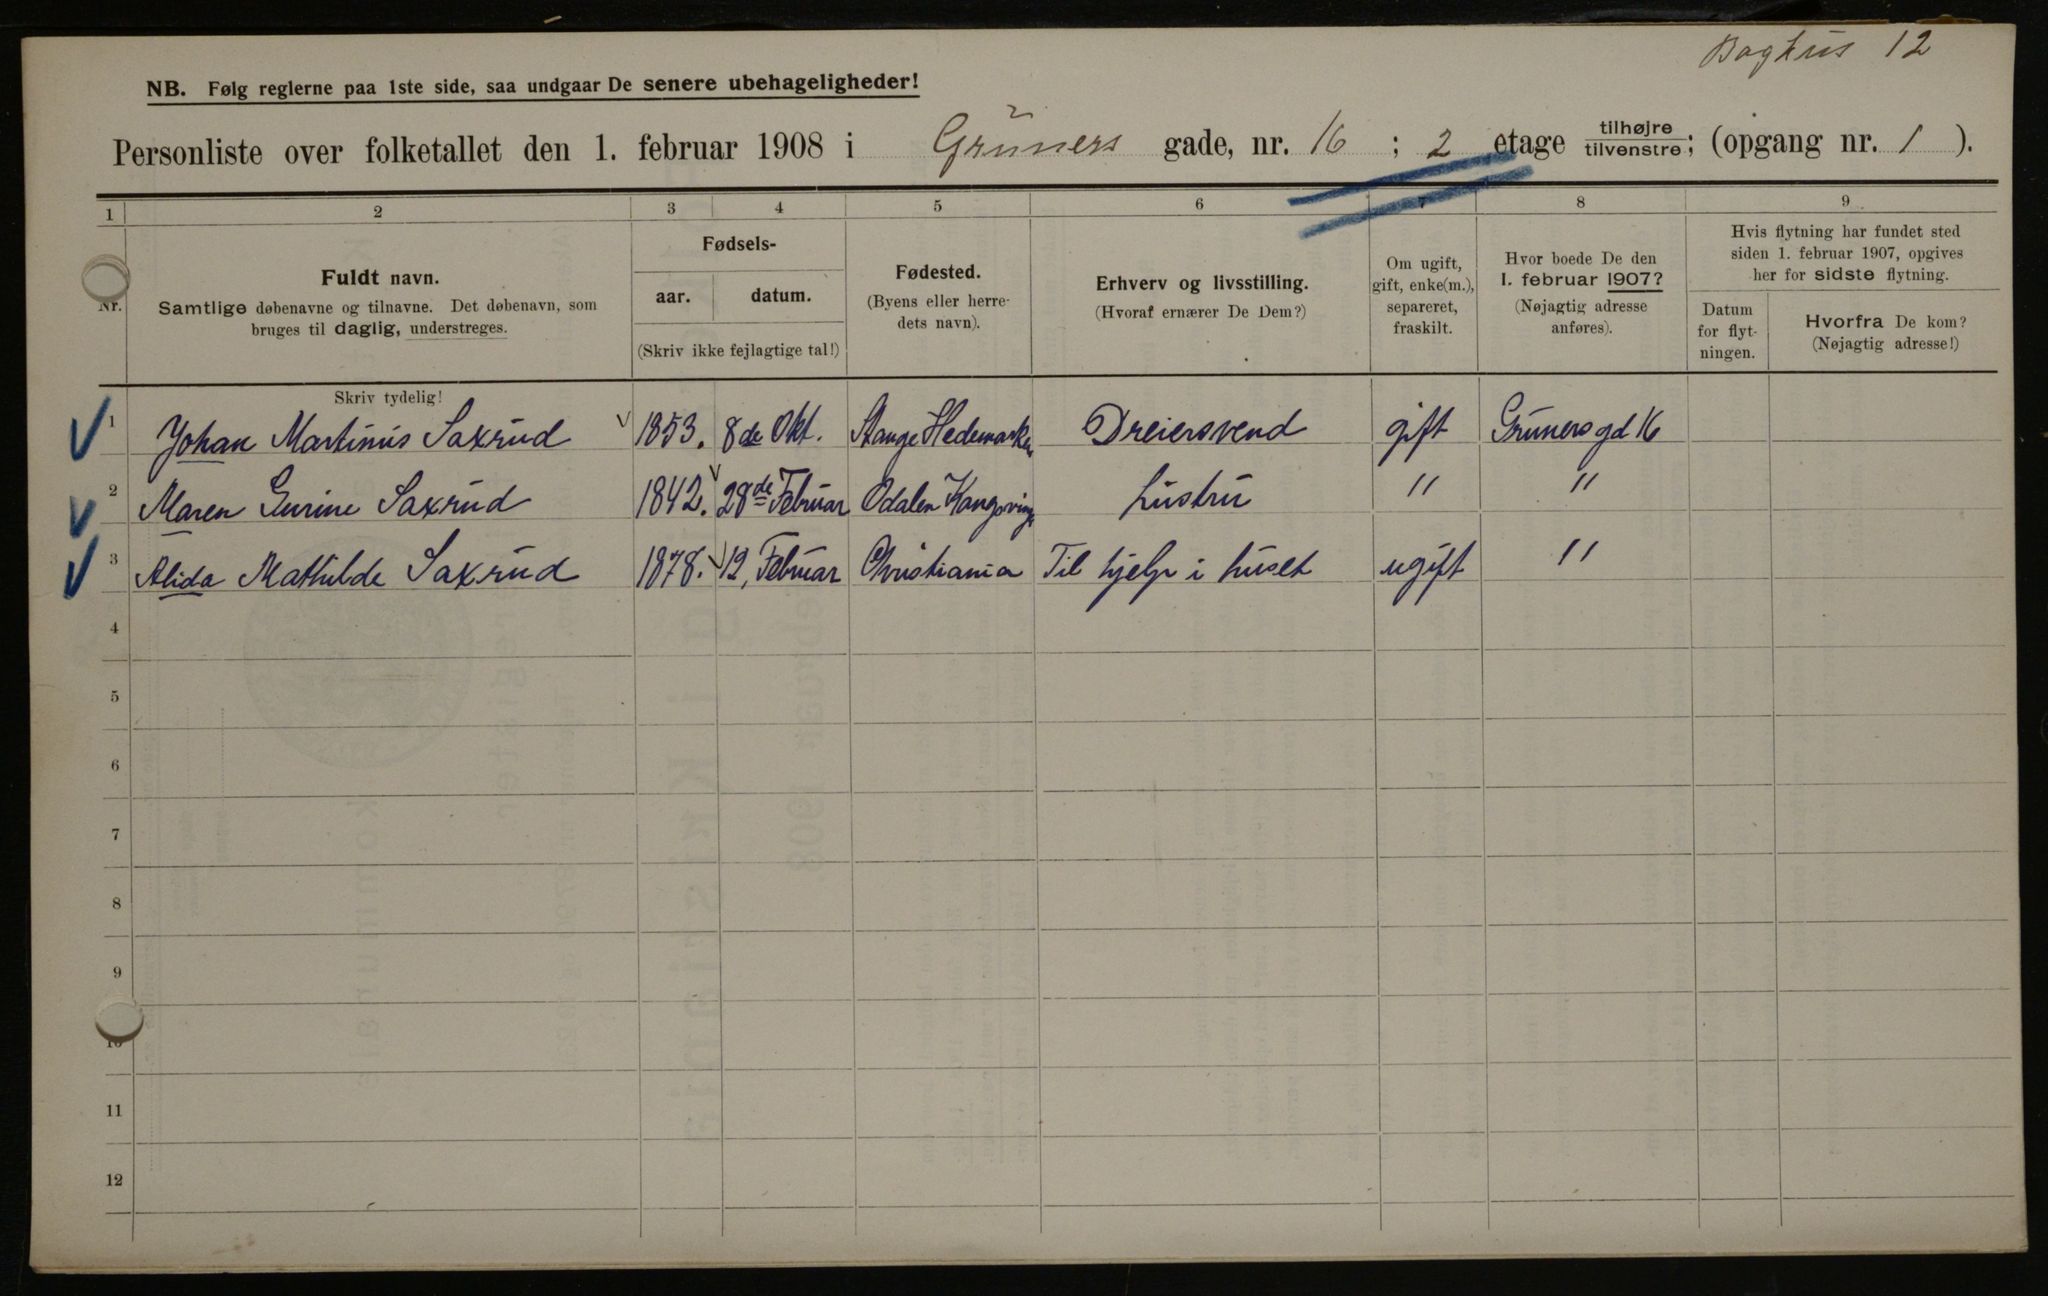 Baghus 12
NB. Følg reglerne paa 1ste side, saa undgaar De senere ubehageligheder!
Personliste over folketallet den 1. februar 1908 i Grüners gade, nr. 16 ; 2 etage tilhøjre tilvenstre; (opgang nr. 1 ).
1 2 3 4 5 6 7 8 9
Nr.
Fuldt navn.
Samtlige døbenavne og tilnavne. Det døbenavn, som
bruges til daglig, understreges.
Fødsels-
aar. datum.
(Skriv ikke fejlagtige tal!)
Fødested.
(Byens eller herre-
dets navn).
Erhverv og livsstilling.
(Hvoraf ernærer De Dem?)
Om ugift,
gift, enke(m.),
separeret,
fraskilt.
Hvor boede De den
1. februar 1907?
(Nøjagtig adresse
anføres).
Hvis flytning har fundet sted
siden 1. februar 1907, opgives
her for sidste flytning.
Datum
for flyt-
ningen.
Hvorfra De kom?
(Nøjagtig adresse!)
Skriv tydelig!
1 Johan Martinus Saxrud 1853. 8de Okt. Stange Hedemarken Dreiersvend gift Grünersgd 16
2 Maren Gurine Saxrud 1842. 28de Februar Odalen Kongsving. hustru " "
3 Alida Mathilde Saxrud 1878. 12, Februar Christiania Til hjelp i huset ugift "
4
5
6
7
8
9
10
11
12